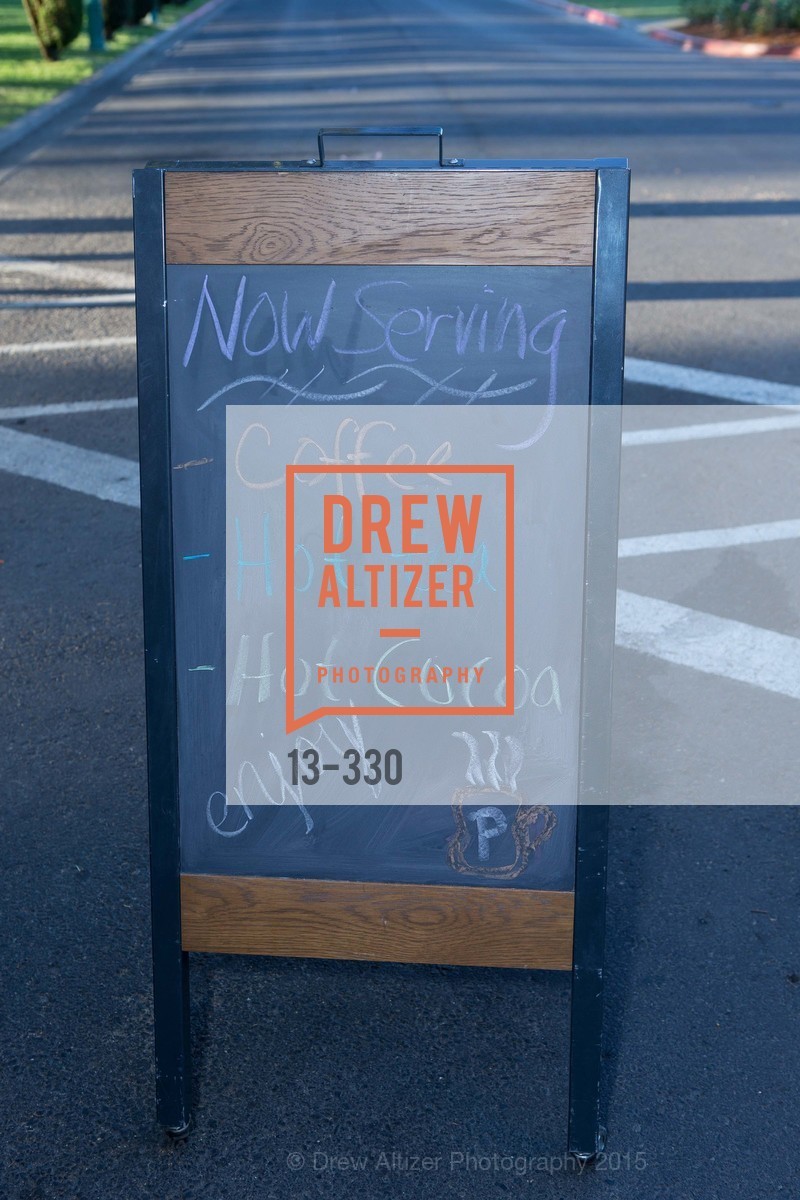 Now Serving
- Coffee
- Hot Tea
- Hot Cocoa
enjoy
P
DREW
ALTIZER
PHOTOGRAPHY
13-330
© Drew Altizer Photography 2015